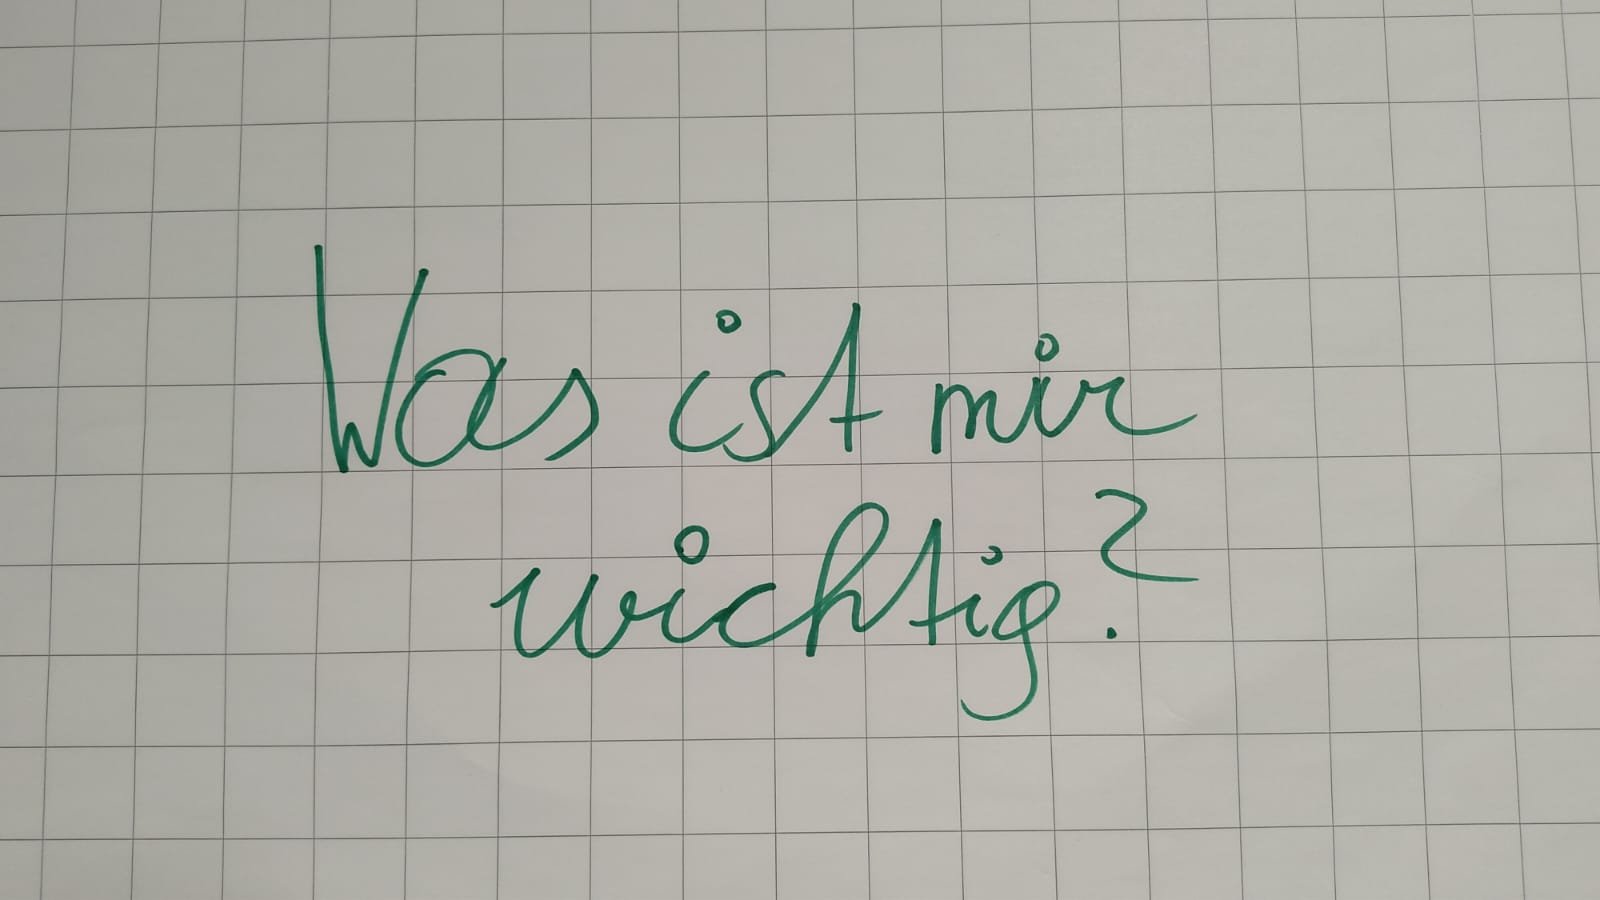 Was ist mir
wichtig?